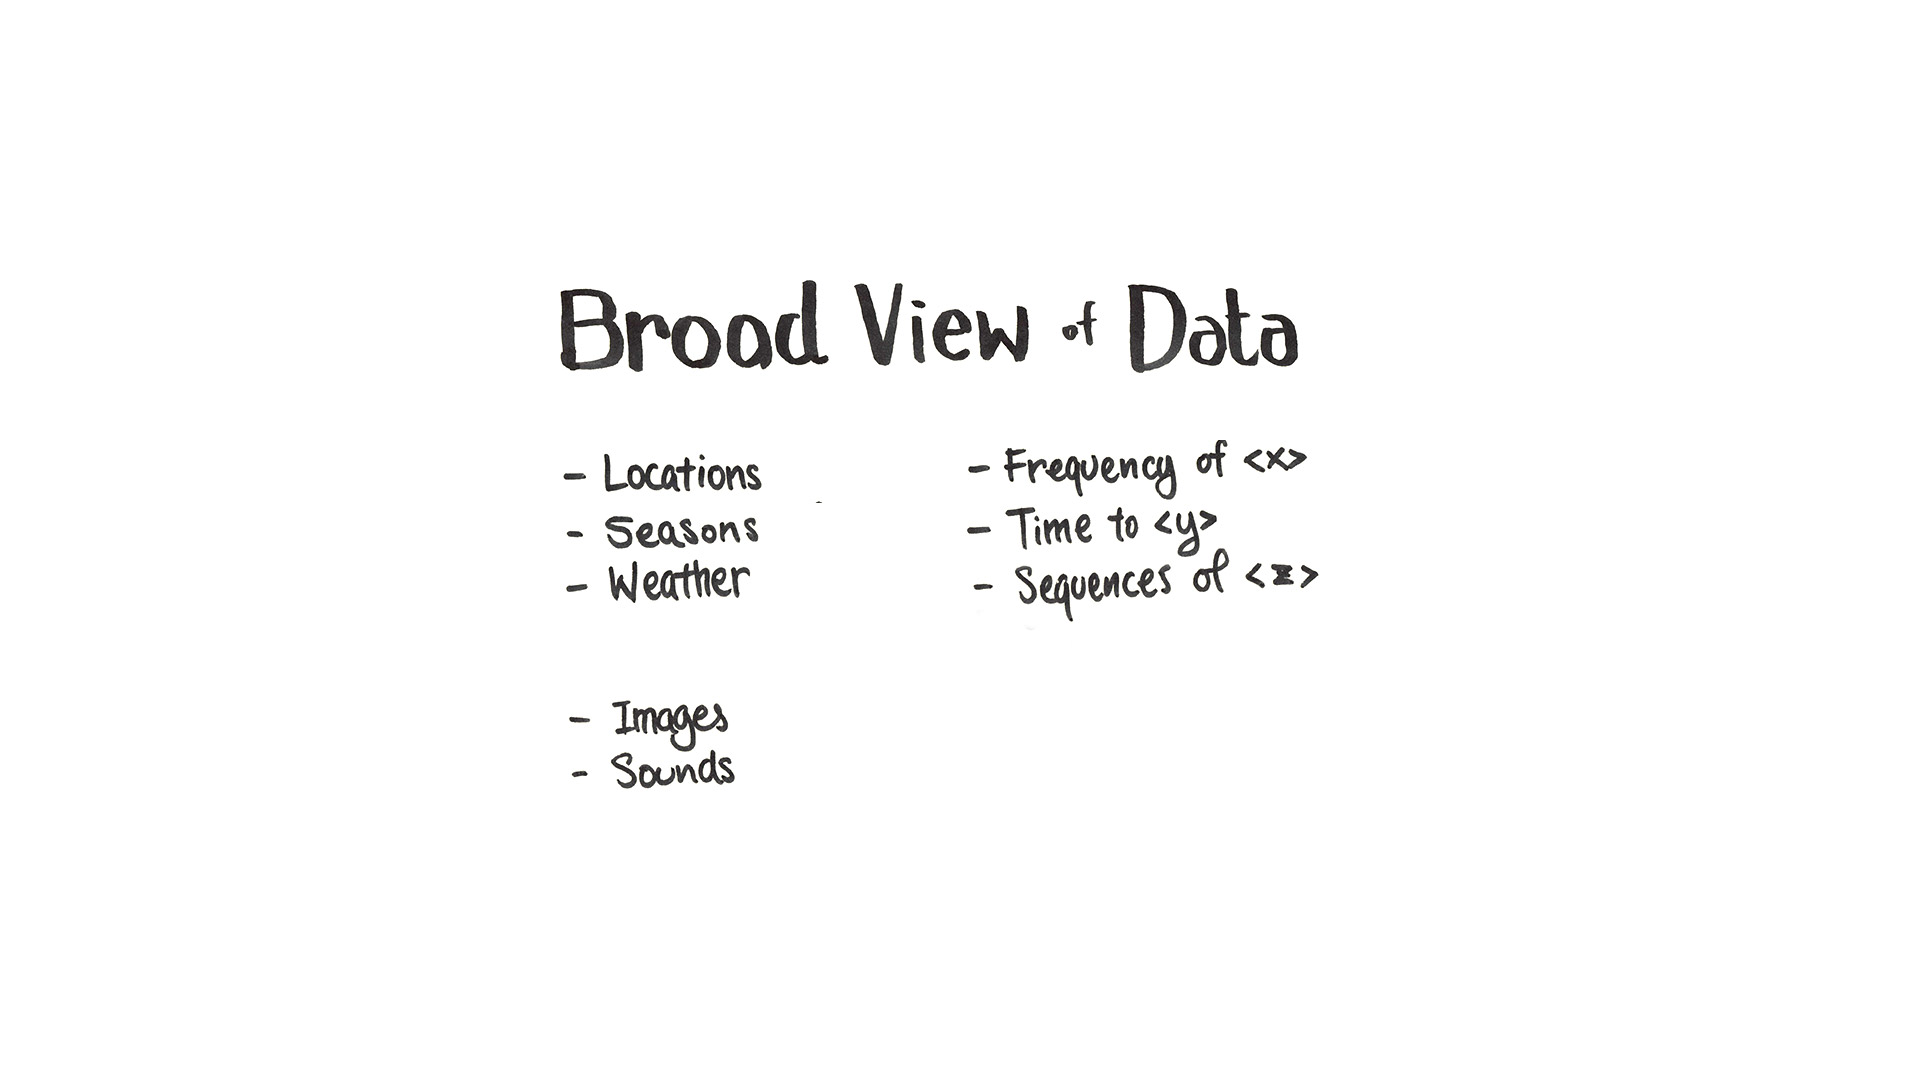 Broad View of Data
- Locations
- Seasons
- Weather
- Images
- Sounds
- Frequency of <x>
- Time to <y>
- Sequences of <z>